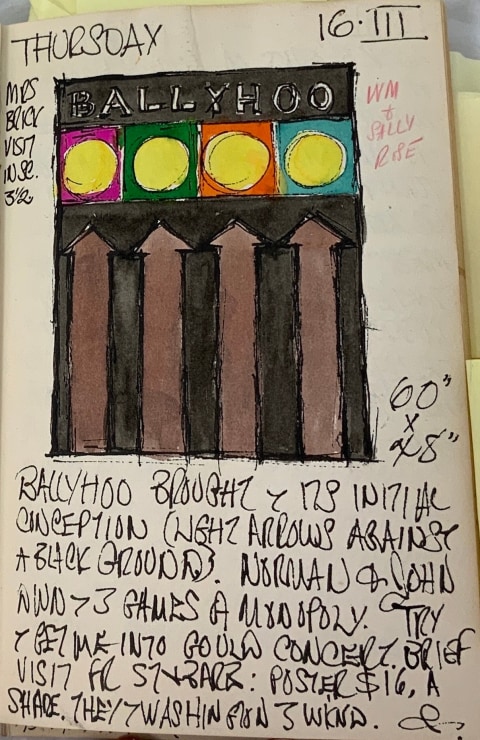 THURSDAY
16·III
MRS
BRICK
VISIT
IN SC.
3½
BALLYHOO
WM
+
SALLY
RISE
60"
X
48"
BALLYHOO BROUGHT ITS INITIAL
CONCEPTION (LIGHT ARROWS AGAINST
A BLACK GROUND). NORMAN & JOHN
DOWN 3 GAMES MONOPOLY. TRY
GET ME INTO GOULD CONCERT. BRIEF
VISIT FR : POSTER $16, A
SHADE. THEY WASHINGTON WKND.